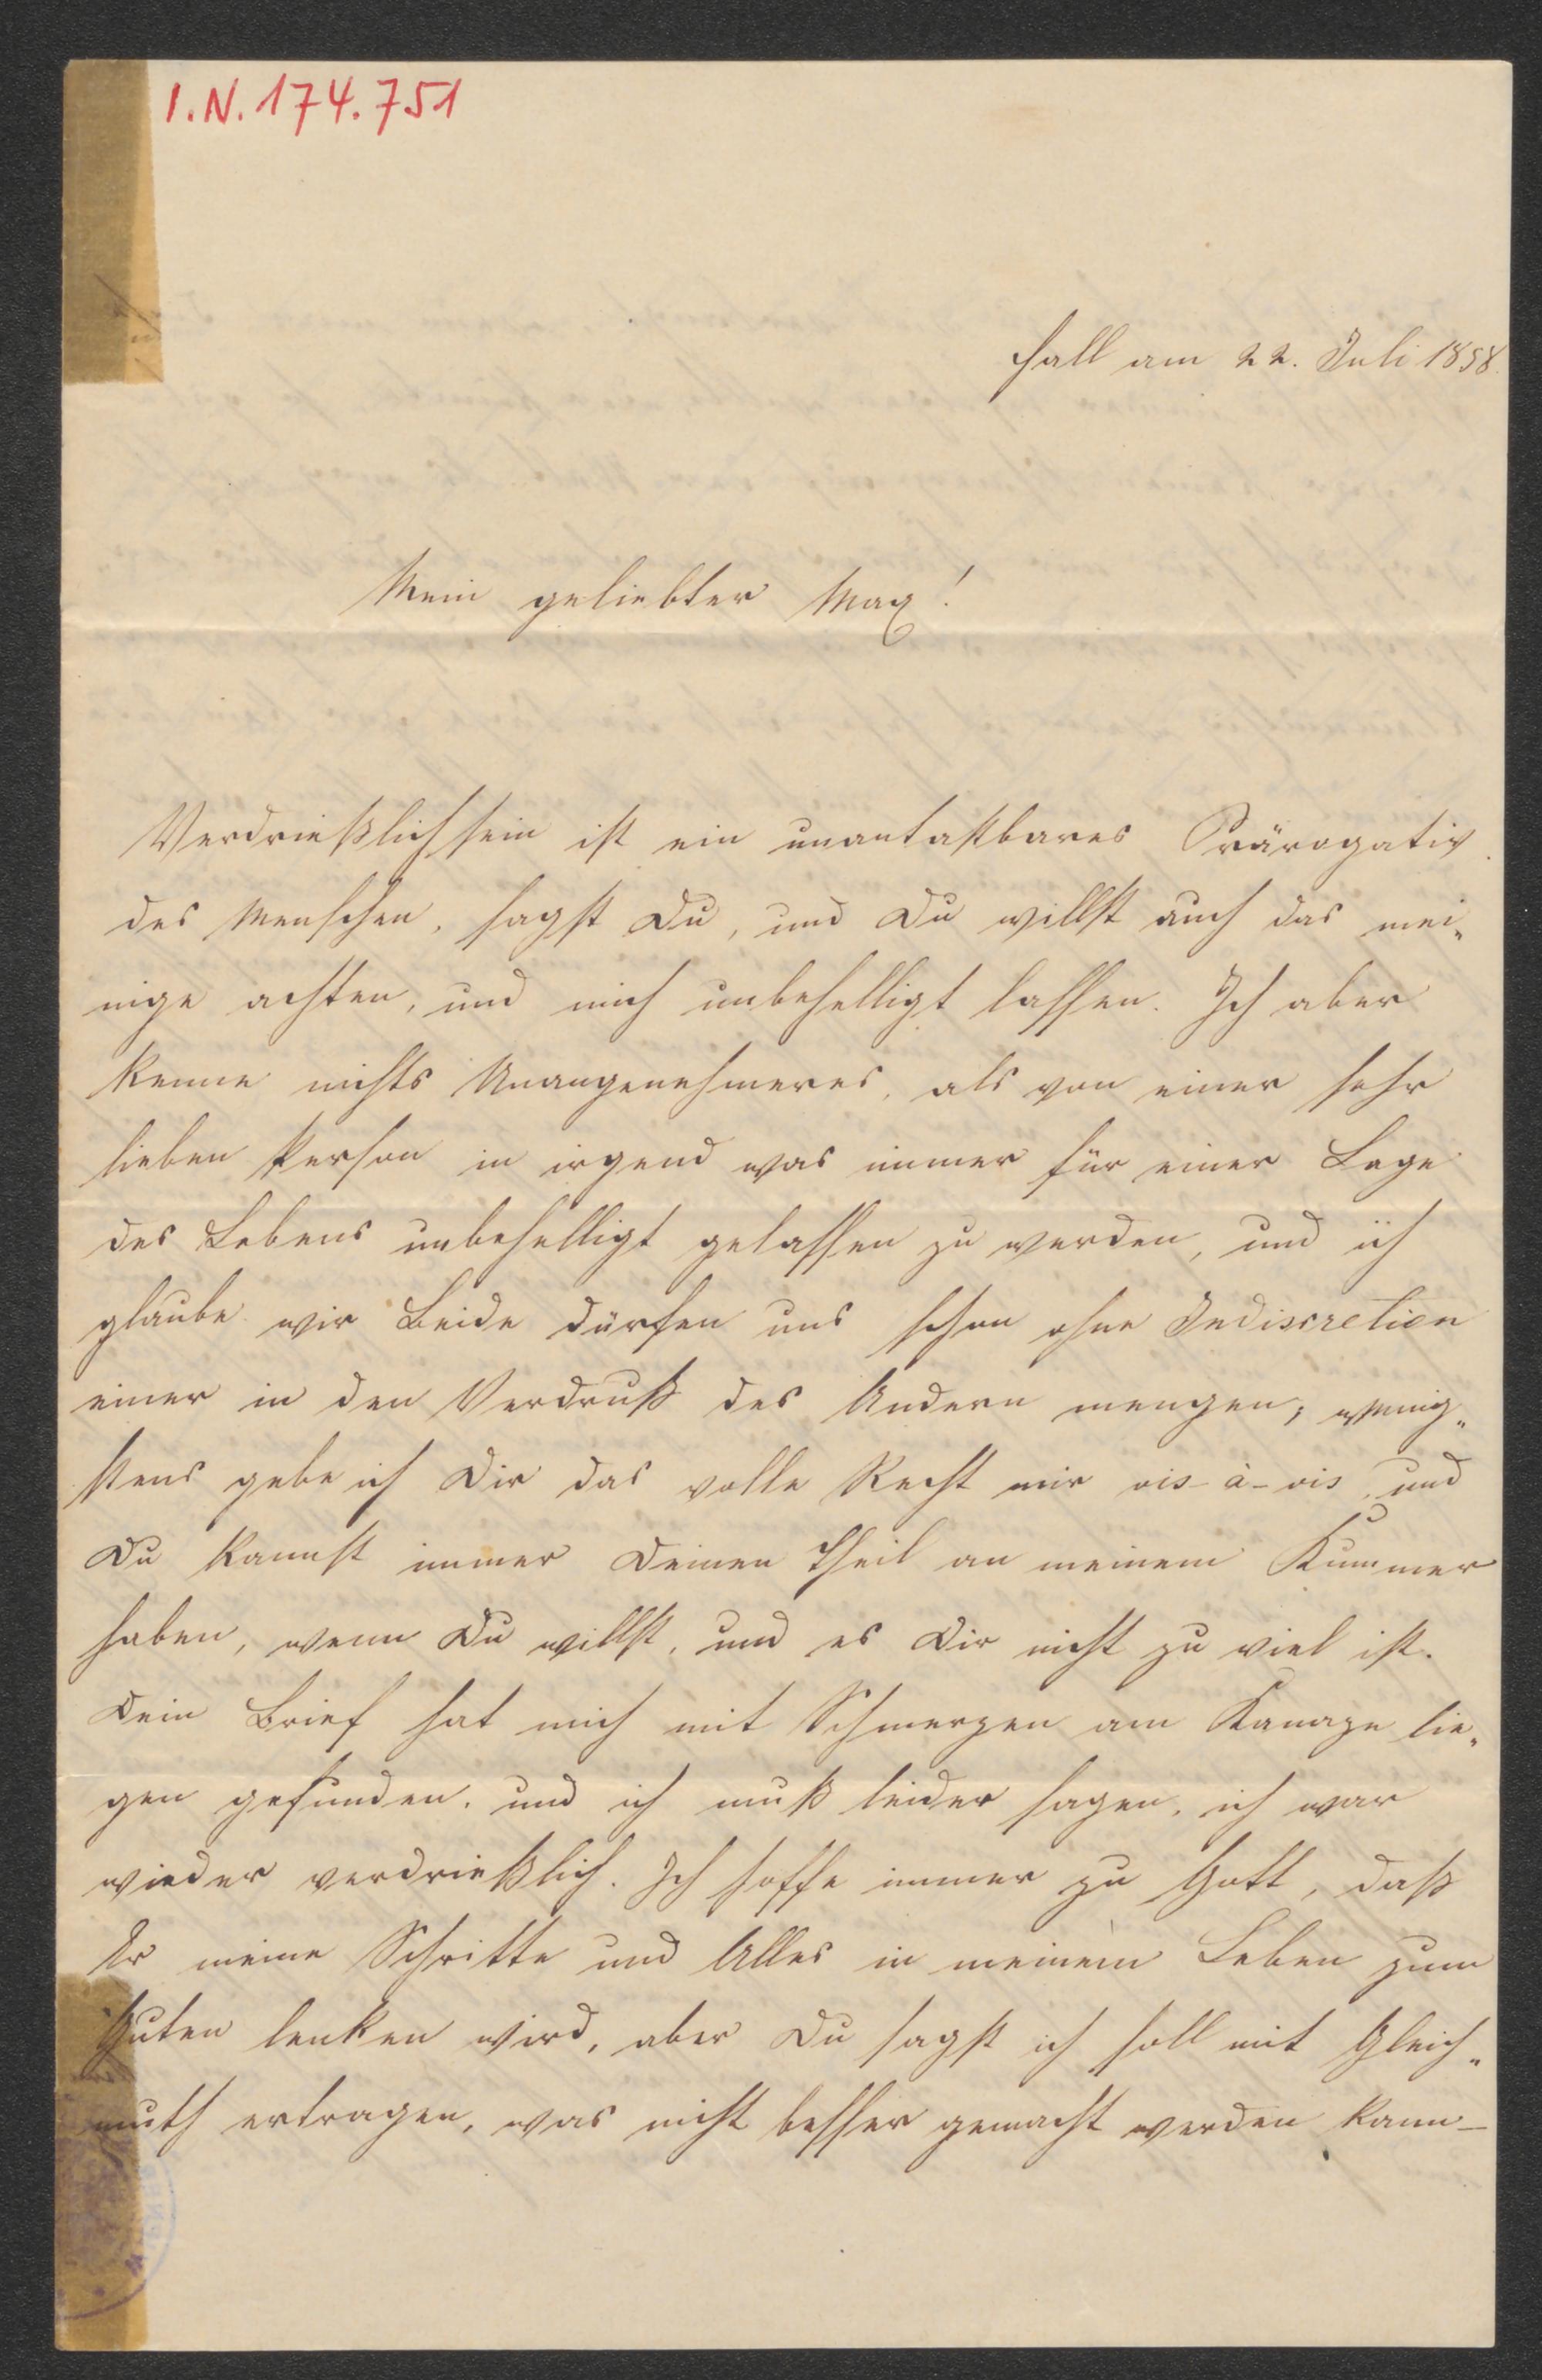 I.N. 174.751
Hall am 22. Juli 1858.
Mein geliebter Max!
Verdrießlichsein ist ein unantastbares Prärogativ
des Menschen, sagst Du, und Du willst auch das mei„
nige achten, und mich unbehelligt lassen. Ich aber
kenne nichts Unangenehmeres, als von einer sehr
lieben Person in irgend was immer für einer Lage
des Lebens unbehelligt gelassen zu werden, und ich
glaube wir Beide dürfen uns schon ohne Indiscretion
einer in den Verdruß des Andern mengen, wenig„
stens gebe ich Dir das volle Recht mir vis-à-vis, und
Du kannst immer Deinen Theil an meinem Kummer
haben, wenn Du willst, und es Dir nicht zu viel ist.
Dein Brief hat mich mit Schmerzen am Kanape lie„
gen gefunden, und ich muß leider sagen, ich war
wieder verdrießlich. Ich hoffe immer zu Gott, daß
Er meine Schritte und Alles in meinem Leben zum
Guten lenken wird, aber Du sagst ich soll mit Gleich„
muth ertragen, was nicht besser gemacht werden kann –